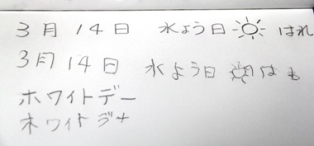 3月14日 水よう日 はれ
3月14日 水よう日 は も
ホワイトデー
ホワイトデナ